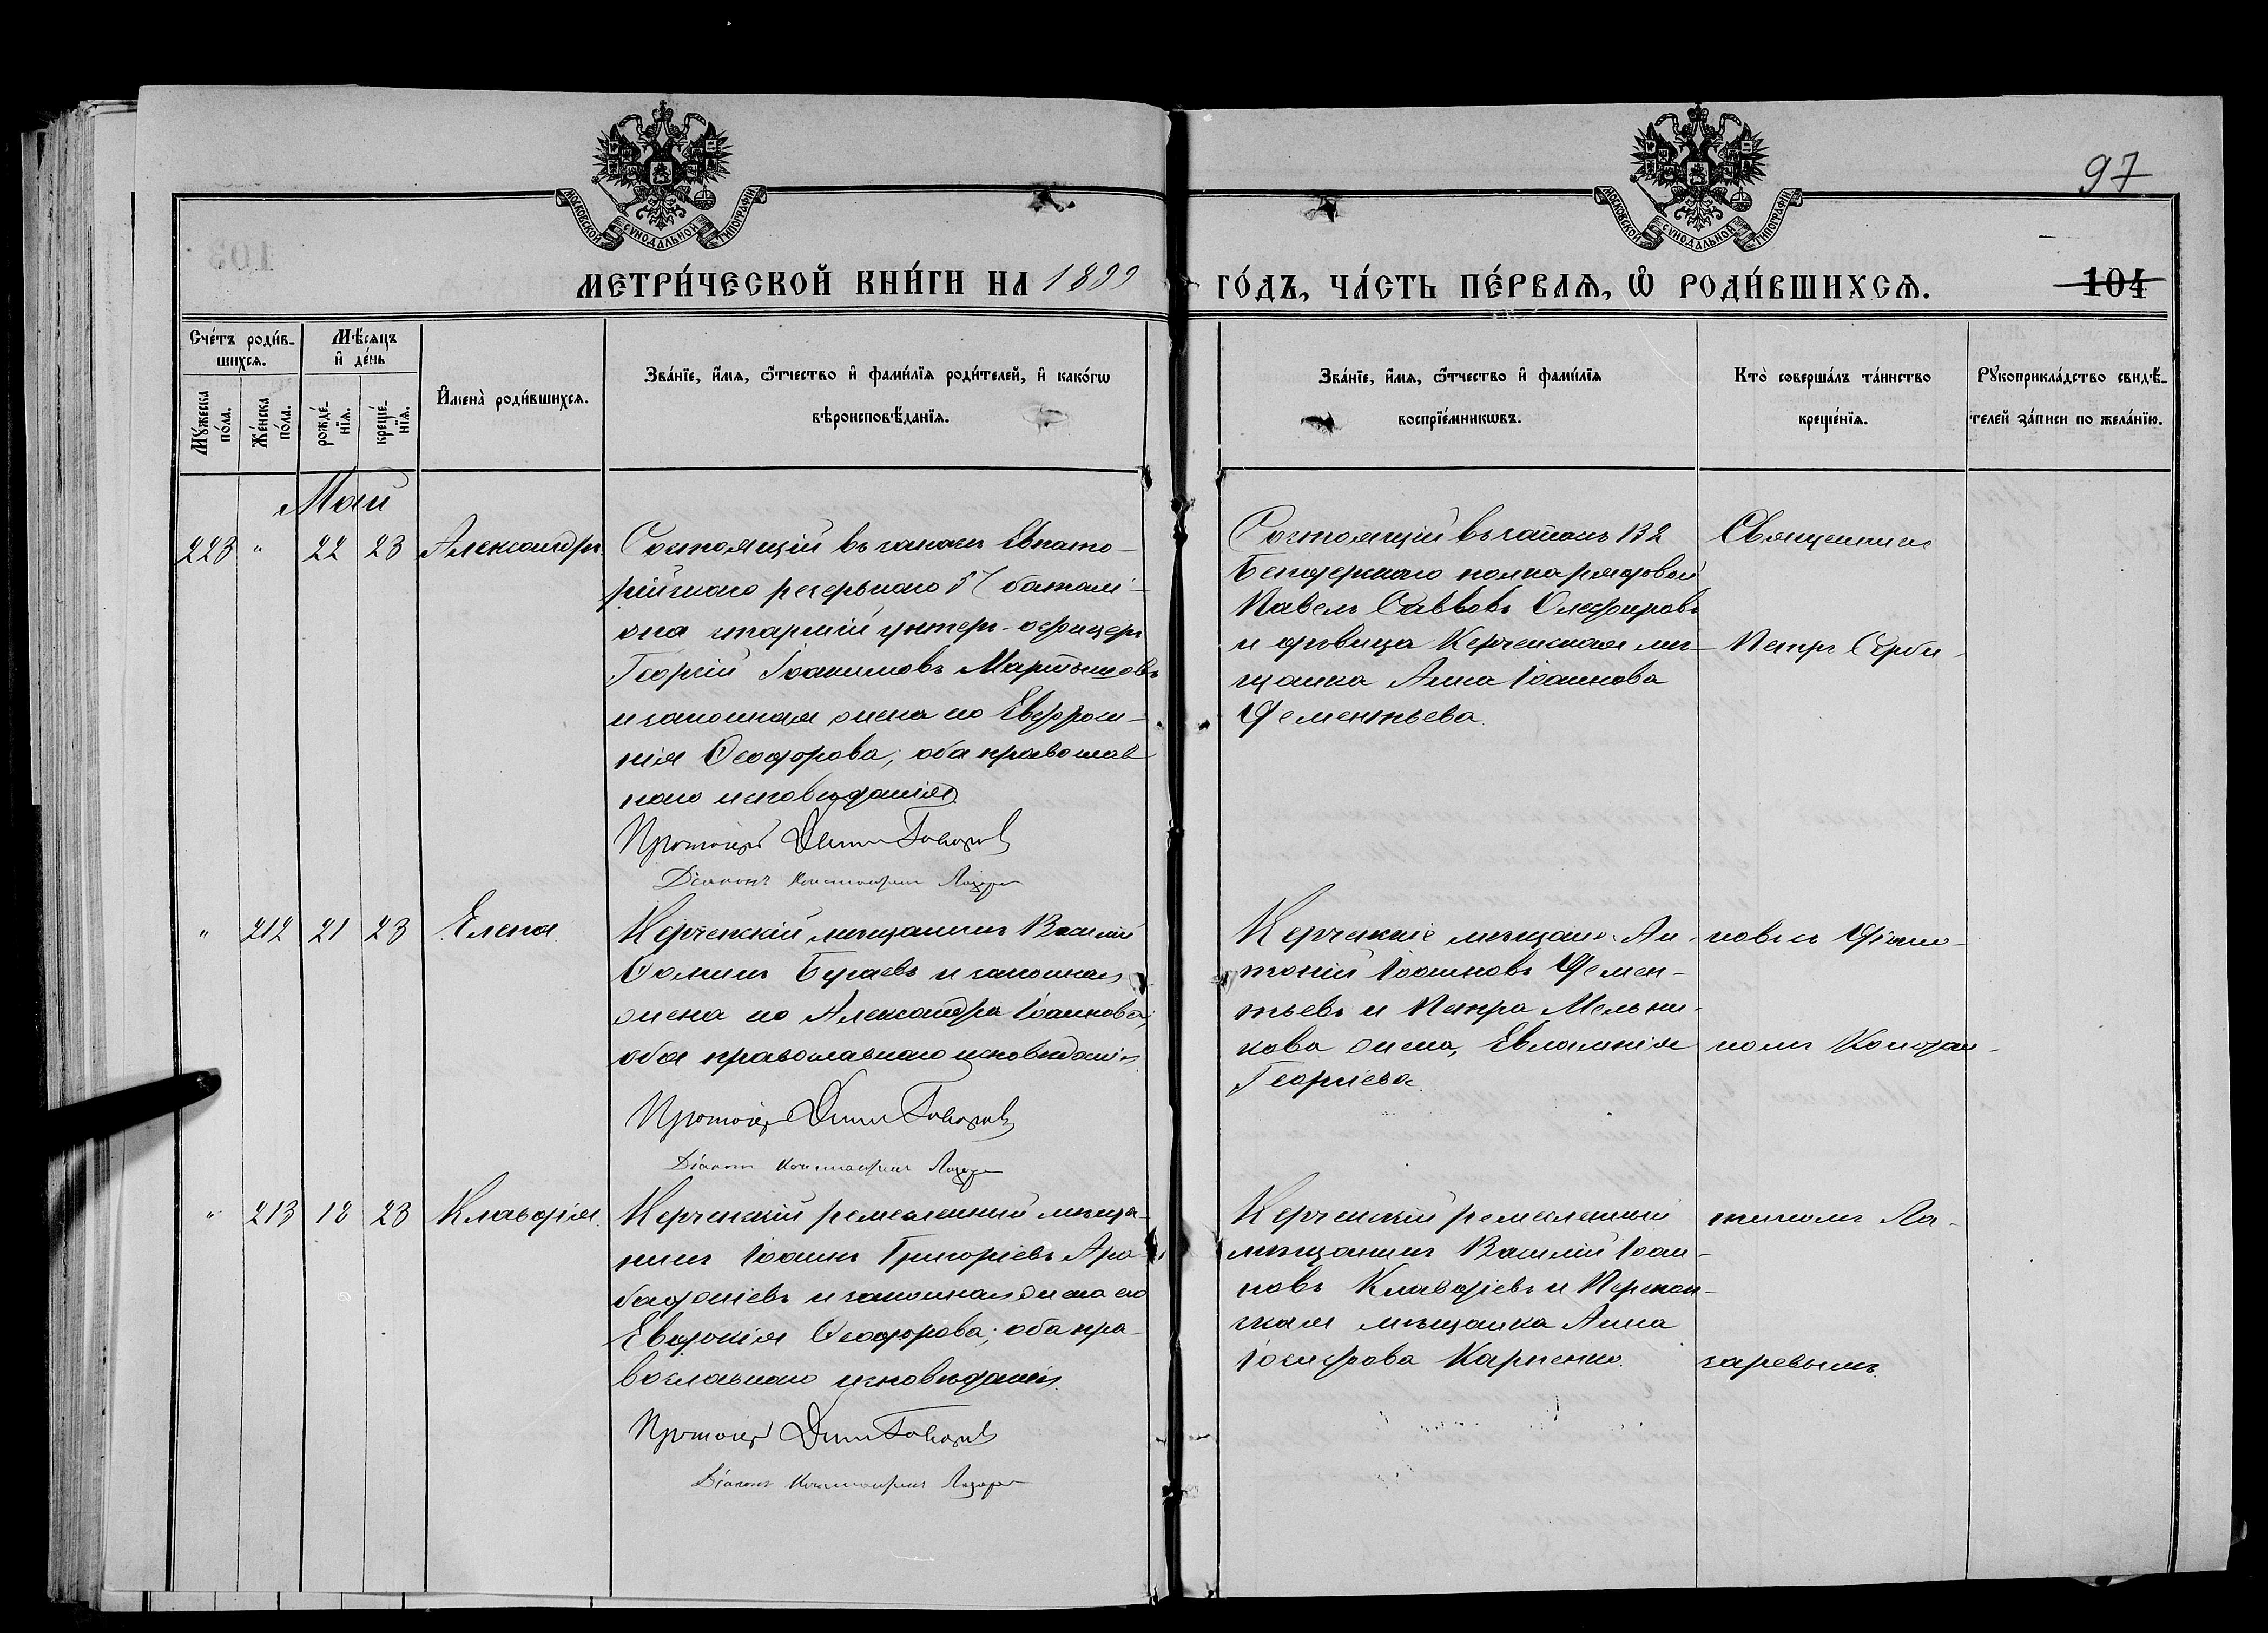 МОСКОВСКОЙ СУНОДАЛЬНОЙ ТИПОГРАФІИ
МОСКОВСКОЙ СУНОДАЛЬНОЙ ТИПОГРАФІИ
97
МЕТРИ́ЧЕСКОЙ КНИ́ГИ НА 1899 ГО́ДЪ, ЧА́СТЬ ПЕ́РВАѦ, Ѡ҆ РОДИ́ВШИХСѦ.
104
Сче́тъ роди́в-
шихсѧ.
Мѣ́сѧцъ
и҆ де́нь
Мꙋ́жеска
по́ла.
Же́нска
по́ла.
рожде́-
нїѧ.
креще́-
нїѧ.
И҆мена̀ роди́вшихсѧ.
Зва́нїе, и҆́мѧ, ѻ҆́тчество и҆ фами́лїѧ роди́телей, и҆ како́гѡ
вѣроисповѣ́данїѧ.
Зва́нїе, и҆́мѧ, ѻ҆́тчество и҆ фами́лїѧ
воспрїе́мникѡвъ.
Кто̀ соверша́лъ та́инство
креще́нїѧ.
Рꙋкоприкла́дство свидѣ́-
телей за́писи по жела́нїю.
Май
223 " 22 23 Александръ
Состоящій въ запасѣ Евпато-
рійскаго резервнаго 57 баталі-
она старшій унтеръ-офицеръ
Георгій Іоакимовъ Мартыновъ
и законная жена его Евфроси-
нія Ѳеодорова; оба православ
наго исповѣданія
Протоіерей
Діаконъ Константинъ Лазаревъ
Состоящій въ запасѣ 132
Бендерскаго полка рядовой
Павелъ Саввовъ Олефировъ
и дѣвица Керченская мѣ-
щанка Анна Іоаннова
Дементьева.
Священникъ
Петръ Серби-
" 212 21 23 Елена.
Керченскій мѣщанинъ Василій
Ѳоминъ Бугаевъ и законная
жена его Александра Іоаннова;
оба православнаго исповѣданія
Протоіерей
Діаконъ Константинъ Лазаревъ
Керченскіе мѣщане: Ан-
тоній Іоанновъ Демен-
тьевъ и Петра Мельни-
кова жена, Евлампія
Георгіева.
новъ съ Діако-
номъ Констан-
" 213 18 23 Клавдія.
Керченскій ремесленный мѣща-
нинъ Іоаннъ Григоріевъ Ара-
баджіевъ и законная жена его
Евдокія Ѳеодорова; оба пра-
вославнаго исповѣданія.
Протоіерей
Діаконъ Константинъ Лазаревъ
Керченскій ремесленный
мѣщанинъ Василій Іоан-
новъ Клавдіевъ и Перекоп-
ская мѣщанка Анна
Іосифова Карпенко.
тиномъ Ла-
заревымъ.